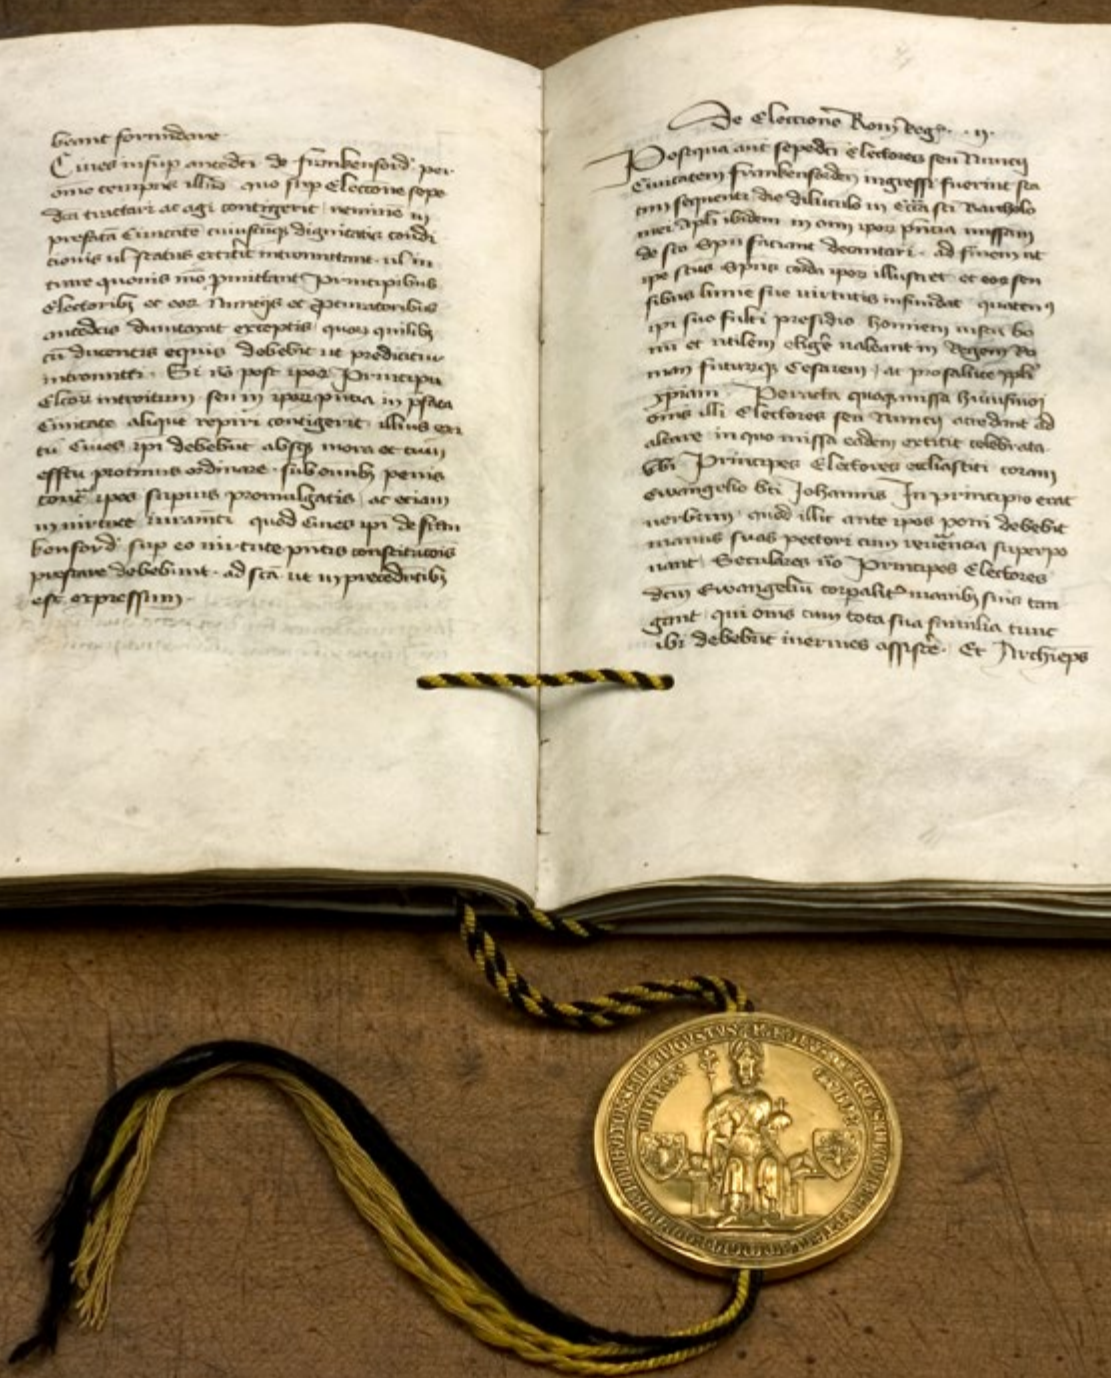 beant formidare
Ciues insup antedci de frankenford per
omne tempus illud quo sup Eleccione sepe
dca tractari ac agi contigerit neminem in
prefatam Ciuitate cuiuscuqz dignitatis condi
cionis ul status extiterit intromittant ul in
trare quouis modo pmittant Principibus
Electoribz et eor Nuncijs et Pcuratoribus
antedcis dumtaxat exceptis quor quilibz
cu ducentis equis debebit ut predicitur
intromitti Si uo post ipor Principu
Elcor introitum seu in ipor pncia in pfata
Ciuitate aliquem repiri contigerit illius exi
tu Ciues ipi debebut absqz mora et cum
effectu protinus ordinare sub omibz penis
contra ipos supius promulgatis ac eciam
in uirtute iuramti quod Ciues ipi de fran
kenford sup eo uirtute pntis constitucois
prestare debebunt ad sca ut in precedentibz
est expressum
De Eleccione Rom Reg . ij.
Postqua aut sepedci Electores seu Nuncij
Ciuitatem frankenforden ingressi fuerint sta
tim sequenti die diluculo in Ecca sci Bartholo
mei apli ibidem in omi ipor pncia missam
de sco Spu faciant decantari ad finem ut
ipe scus Spus corda ipor illustret et eor sen
sibus lumen sue uirtutis infundat quaten9
ipi suo fulti presidio hominem iustu bo
nu et utilem eligere ualeant in Regem Ro
man futurqz Cesarem ac pro salute ppli
xpiani Peracta quoqz missa huiusmoi
oms illi Electores seu Nuncij accedant ad
altare in quo missa eadem extitit celebrata
Vbi Principes Electores ecclastici coram
Ewangelio bti Johannis In principio erat
uerbum quod illic ante ipos poni debebit
manus suas pectori cum reuerencia superpo
nant Seculares uo Principes Electores
dcm Ewangeliu corpalit manibz suis tan
gant qui oms cum tota sua familia tunc
ibi debebut inermes assistere Et Archieps